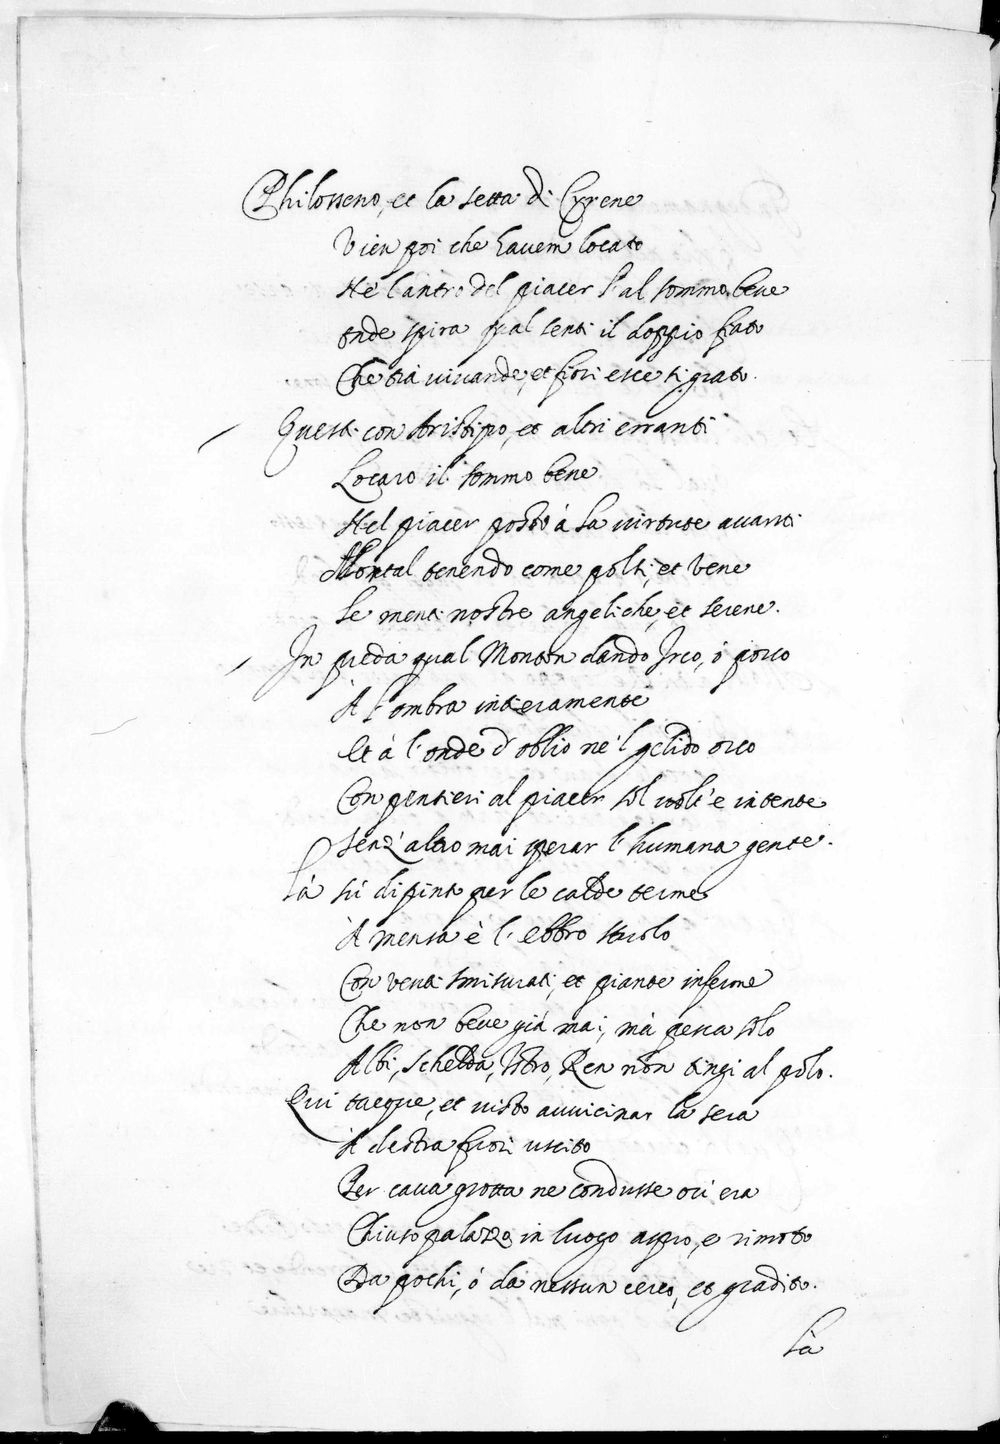 Philosseno, et la setta di Cyrene
Vien poi che havem locato
Ne l'antro del piacer s' al sommo bene
Onde spira qual senti il doppio fiato
Che trà vivande, et fiori esce sì grato.
Questi con Aristipo, et altri erranti
Locaro il sommo bene
Nel piacer posto à la virtute avanti
Mortal tenendo come polsi, et vene
Le menti nostre angeliche, et serene.
In preda qual Monton dando Irco, ó porco
A l'ombra intieramente
Et à l'onde d'oblio ne'l gelido orco
Con pensieri al piacer sol volt'e intente
Senz'altro mai sperar l'humana gente.
Là sù dipint per le calde terme
A mensa è l'ebbro stuolo
Con venti smisurati, et piante inferme
Che non beve già mai, mà pesca solo
Albi, Schelda, Istro, Ren non tingi al polo.
Qui tacque, et visto avvicinar la sera
A destra fuori uscito
Per cava grotta ne condusse ov' era
Chiuso palazzo in luogo aspro, e rimoto
Da pochi, ó da nessun cerco, et gradito.
Là